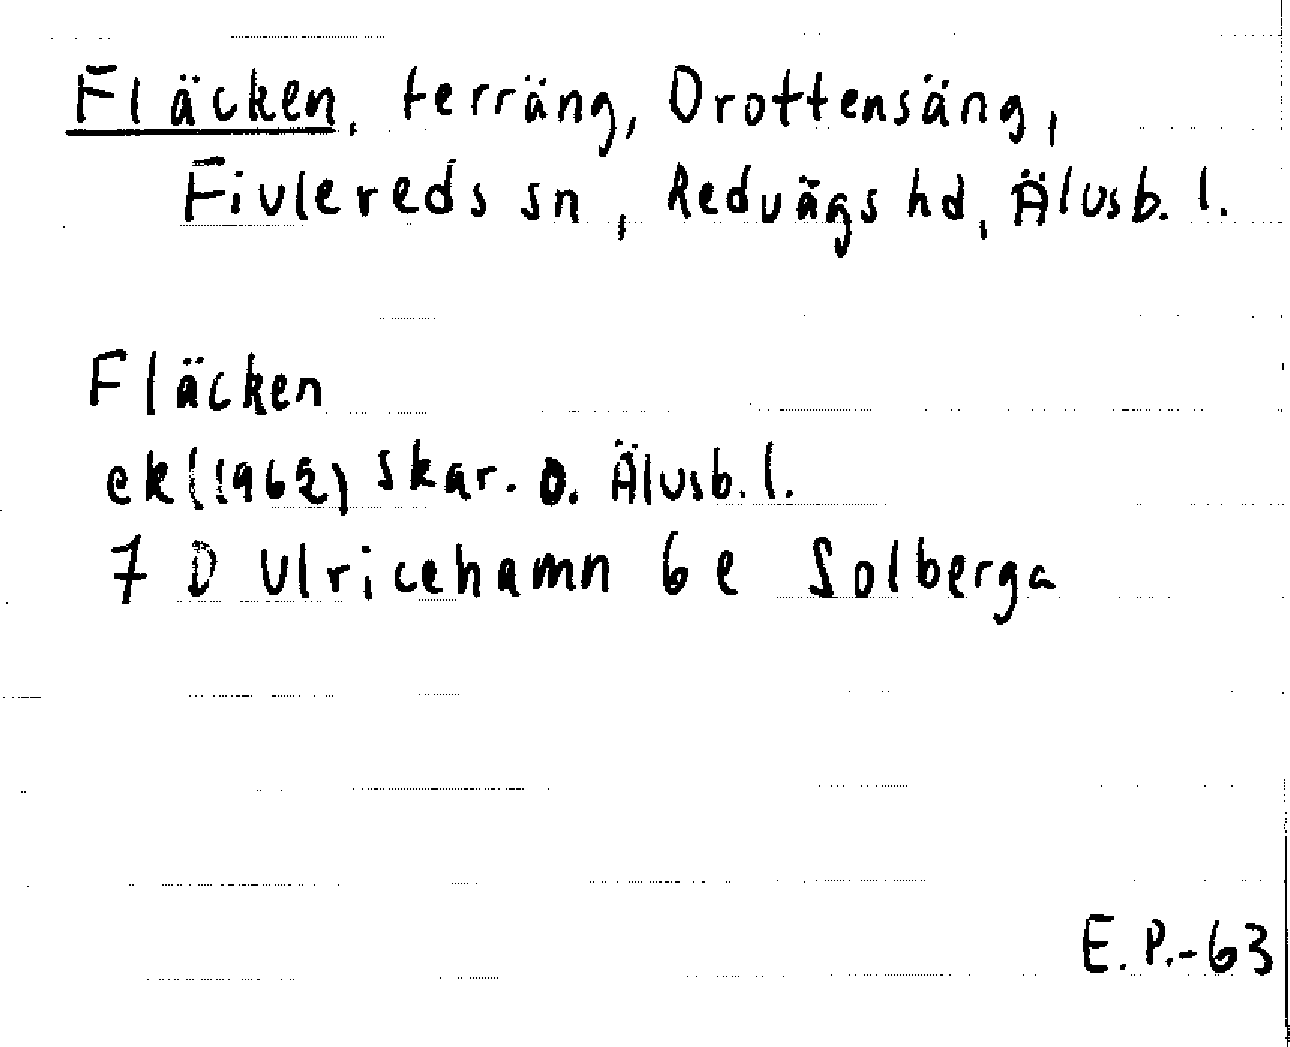 Fläcken, terräng, Drottensäng,
Fivlereds sn, Redvägs hd, Älvsb. l.
Fläcken
ek (1962) Skar. o. Älvsb. l.
7 D Ulricehamn 6 e Solberga
E. P. - 63